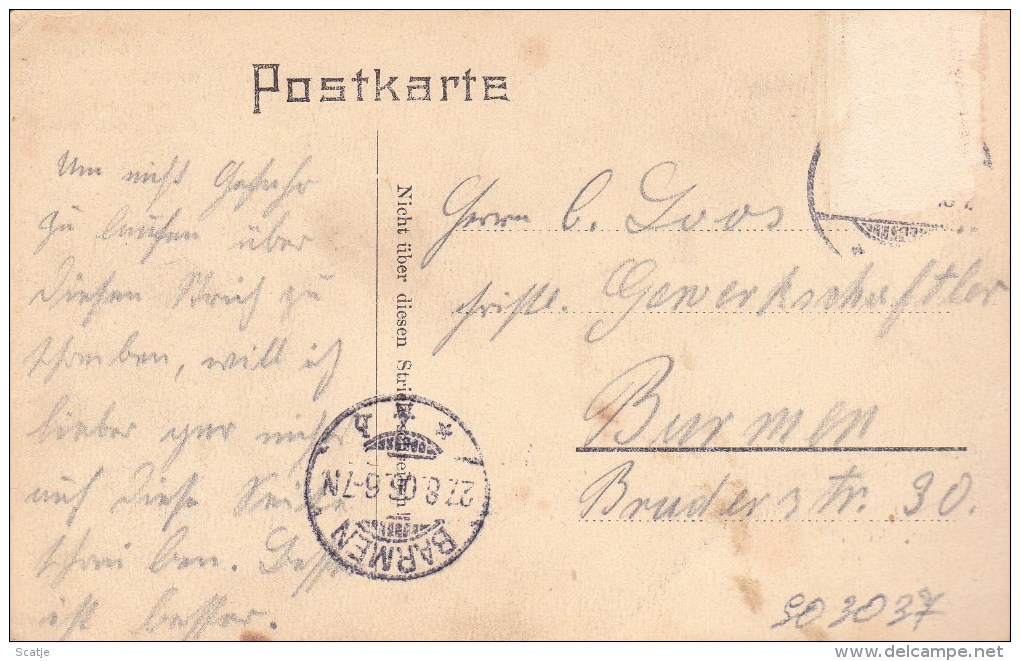 Postkarte
Um nicht Gefahr
zu laufen über
diesen Strich zu
schreiben, will ich
lieber gar nicht
auf diese Seite
schreiben. Besser
ist besser.
Nicht über diesen Strich schreiben!
Herrn C. Loos
christl. Gewerkschaftler
Barmen
Bruderstr. 30.
BARMEN
27.8.05.6-7N
903037
Scatje
delcampe.net